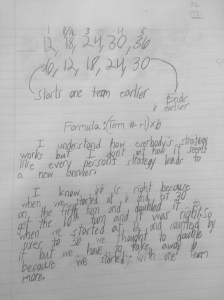 12, 18, 24, 30, 36
6, 12, 18, 24, 30
Starts one term earlier
Ends
earlier
Formula: (Term # +1)×6
I understand how everybody's strategy
works but I don't get how it seems
like every person's strategy leads to
a new border.
I know is right because
when we started at 6 and got 30
on the fifth turn and doubled it
got the turn and it was right. So
when we started at and counted by
rules to 30 we thought to double
it but we have to take away 6
because we started with one term
more.